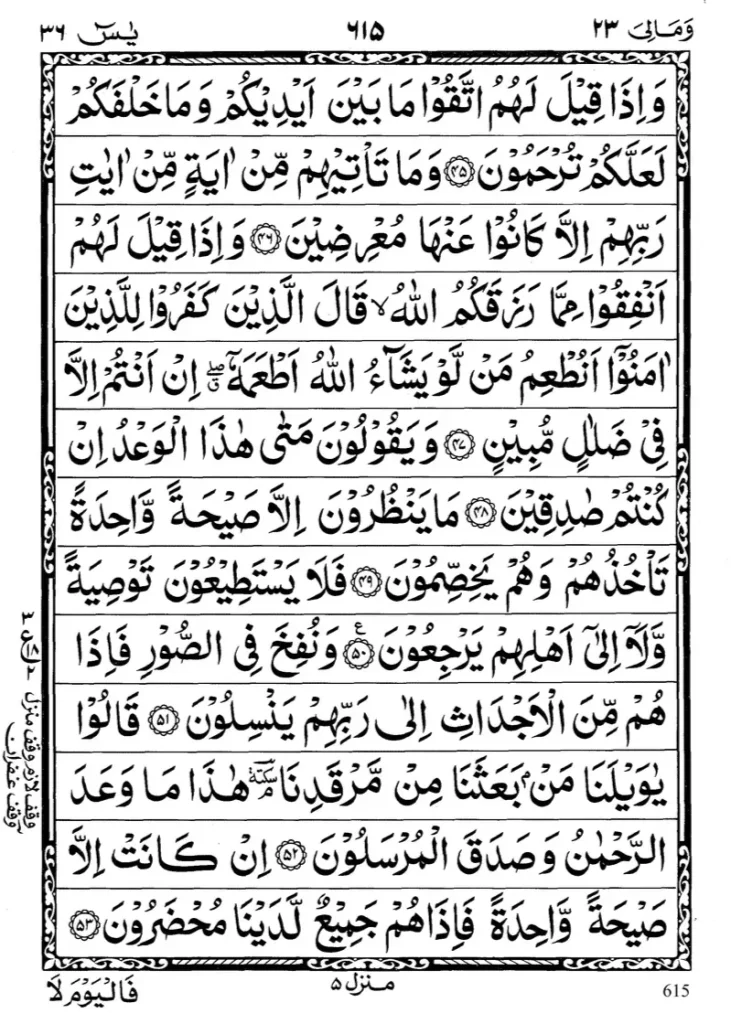 وَمَالِىَ ٢٣ ٦١٥ يٰسٓ ٣٦
وَاِذَا قِيْلَ لَهُمُ اتَّقُوْا مَا بَيْنَ اَيْدِيْكُمْ وَمَا خَلْفَكُمْ
لَعَلَّكُمْ تُرْحَمُوْنَ ﴿٤٥﴾ وَمَا تَاْتِيْهِمْ مِّنْ اٰيَةٍ مِّنْ اٰيٰتِ
رَبِّهِمْ اِلَّا كَانُوْا عَنْهَا مُعْرِضِيْنَ ﴿٤٦﴾ وَاِذَا قِيْلَ لَهُمْ
اَنْفِقُوْا مِمَّا رَزَقَكُمُ اللّٰهُ ۙ قَالَ الَّذِيْنَ كَفَرُوْا لِلَّذِيْنَ
اٰمَنُوْٓا اَنُطْعِمُ مَنْ لَّوْ يَشَآءُ اللّٰهُ اَطْعَمَهٗٓ ۖ اِنْ اَنْتُمْ اِلَّا
فِيْ ضَلٰلٍ مُّبِيْنٍ ﴿٤٧﴾ وَيَقُوْلُوْنَ مَتٰى هٰذَا الْوَعْدُ اِنْ
كُنْتُمْ صٰدِقِيْنَ ﴿٤٨﴾ مَا يَنْظُرُوْنَ اِلَّا صَيْحَةً وَّاحِدَةً
تَاْخُذُهُمْ وَهُمْ يَخِصِّمُوْنَ ﴿٤٩﴾ فَلَا يَسْتَطِيْعُوْنَ تَوْصِيَةً
وَّلَآ اِلٰٓى اَهْلِهِمْ يَرْجِعُوْنَ ﴿٥٠﴾ ع وَنُفِخَ فِي الصُّوْرِ فَاِذَا
هُمْ مِّنَ الْاَجْدَاثِ اِلٰى رَبِّهِمْ يَنْسِلُوْنَ ﴿٥١﴾ قَالُوْا
يٰوَيْلَنَا مَنْۢ بَعَثَنَا مِنْ مَّرْقَدِنَا ۘ سكتة هٰذَا مَا وَعَدَ
الرَّحْمٰنُ وَصَدَقَ الْمُرْسَلُوْنَ ﴿٥٢﴾ اِنْ كَانَتْ اِلَّا
صَيْحَةً وَّاحِدَةً فَاِذَا هُمْ جَمِيْعٌ لَّدَيْنَا مُحْضَرُوْنَ ﴿٥٣﴾
وقف لازم وقف منزل
وقف غفران
منزل ٥
فَالْيَوْمَ لَا
615